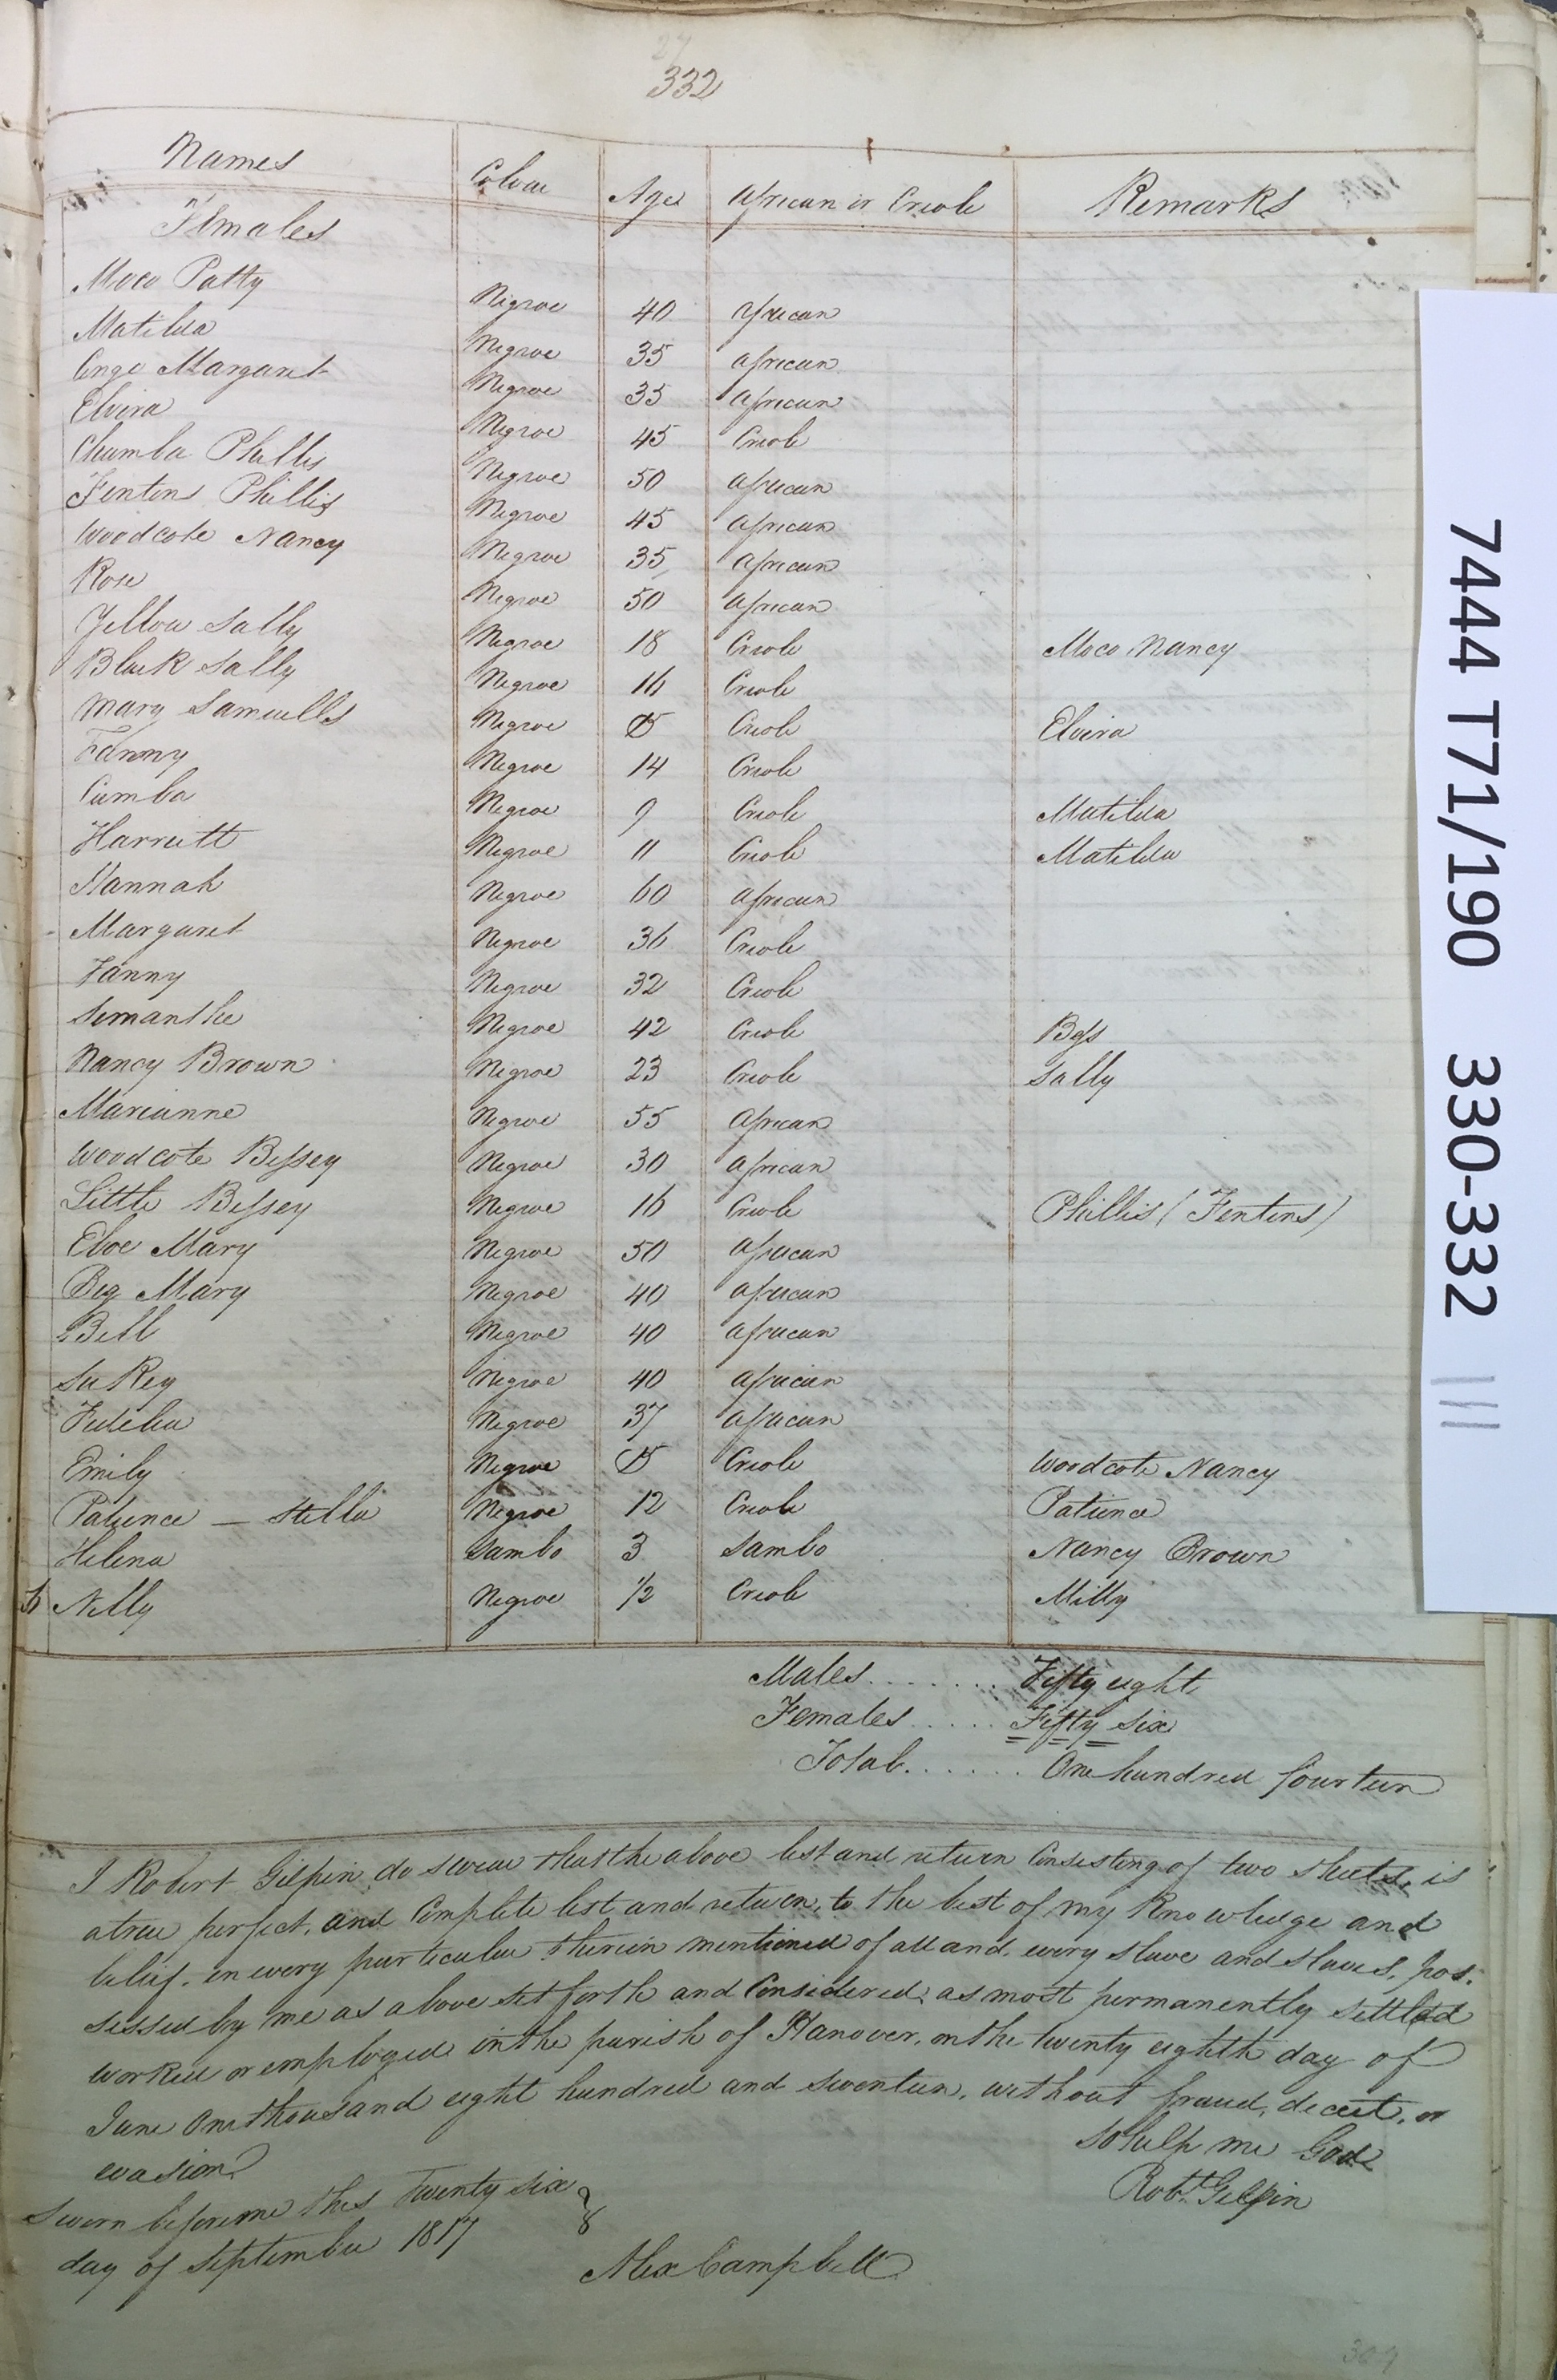 27
332
Names Colour Age African or Creole Remarks
Females
Moco Patty Negroe 40 African
Matilda Negroe 35 African
Congo Margaret Negroe 35 African
Elvira Negroe 45 Creole
Chamba Phillis Negroe 50 African
Fentons Phillis Negroe 45 African
Woodcote Nancy Negroe 35 African
Rose Negroe 50 African
Yellow Sally Negroe 18 Creole Moco Nancy
Black Sally Negroe 16 Creole
Mary Samuells Negroe 15 Creole Elvira
Fanny Negroe 14 Creole
Cumba Negroe 9 Creole Matilda
Harriett Negroe 11 Creole Matilda
Hannah Negroe 60 African
Margaret Negroe 36 Creole
Fanny Negroe 32 Creole
Semanthe Negroe 42 Creole Bess
Nancy Brown Negroe 23 Creole Sally
Marianne Negroe 55 African
Woodcote Bessey Negroe 30 African
Little Bessey Negroe 16 Creole Phillis (Fentons)
Eboe Mary Negroe 50 African
Big Mary Negroe 40 African
Bell Negroe 40 African
SuKey Negroe 40 African
Fidelia Negroe 37 African
Emily Negroe 15 Creole Woodcote Nancy
Patience — Stella Negroe 12 Creole Patience
Helena Sambo 3 Sambo Nancy Brown
Nelly Negroe 1/2 Creole Milly
Males ....... Fifty eight
Females ..... Fifty Six
Total ...... One hundred fourteen
I Robert Gilpin do swear that the above list and return Consisting of two sheets, is
a true perfect, and Complete list and return, to the best of my Knowledge and
belief. in every particular therein mentioned of all and every slave and slaves, pos-
sessed by me as above set forth and Considered as most permanently settled
worked or employed in the parish of Hanover, on the twenty eighth day of
June One thousand eight hundred and seventeen, without fraud, deceit, or
evasion So help me God
Sworn before me this Twenty six Robt. Gilpin
day of September 1817
Alex Campbell
309
7444 T71/190 330-332 |||